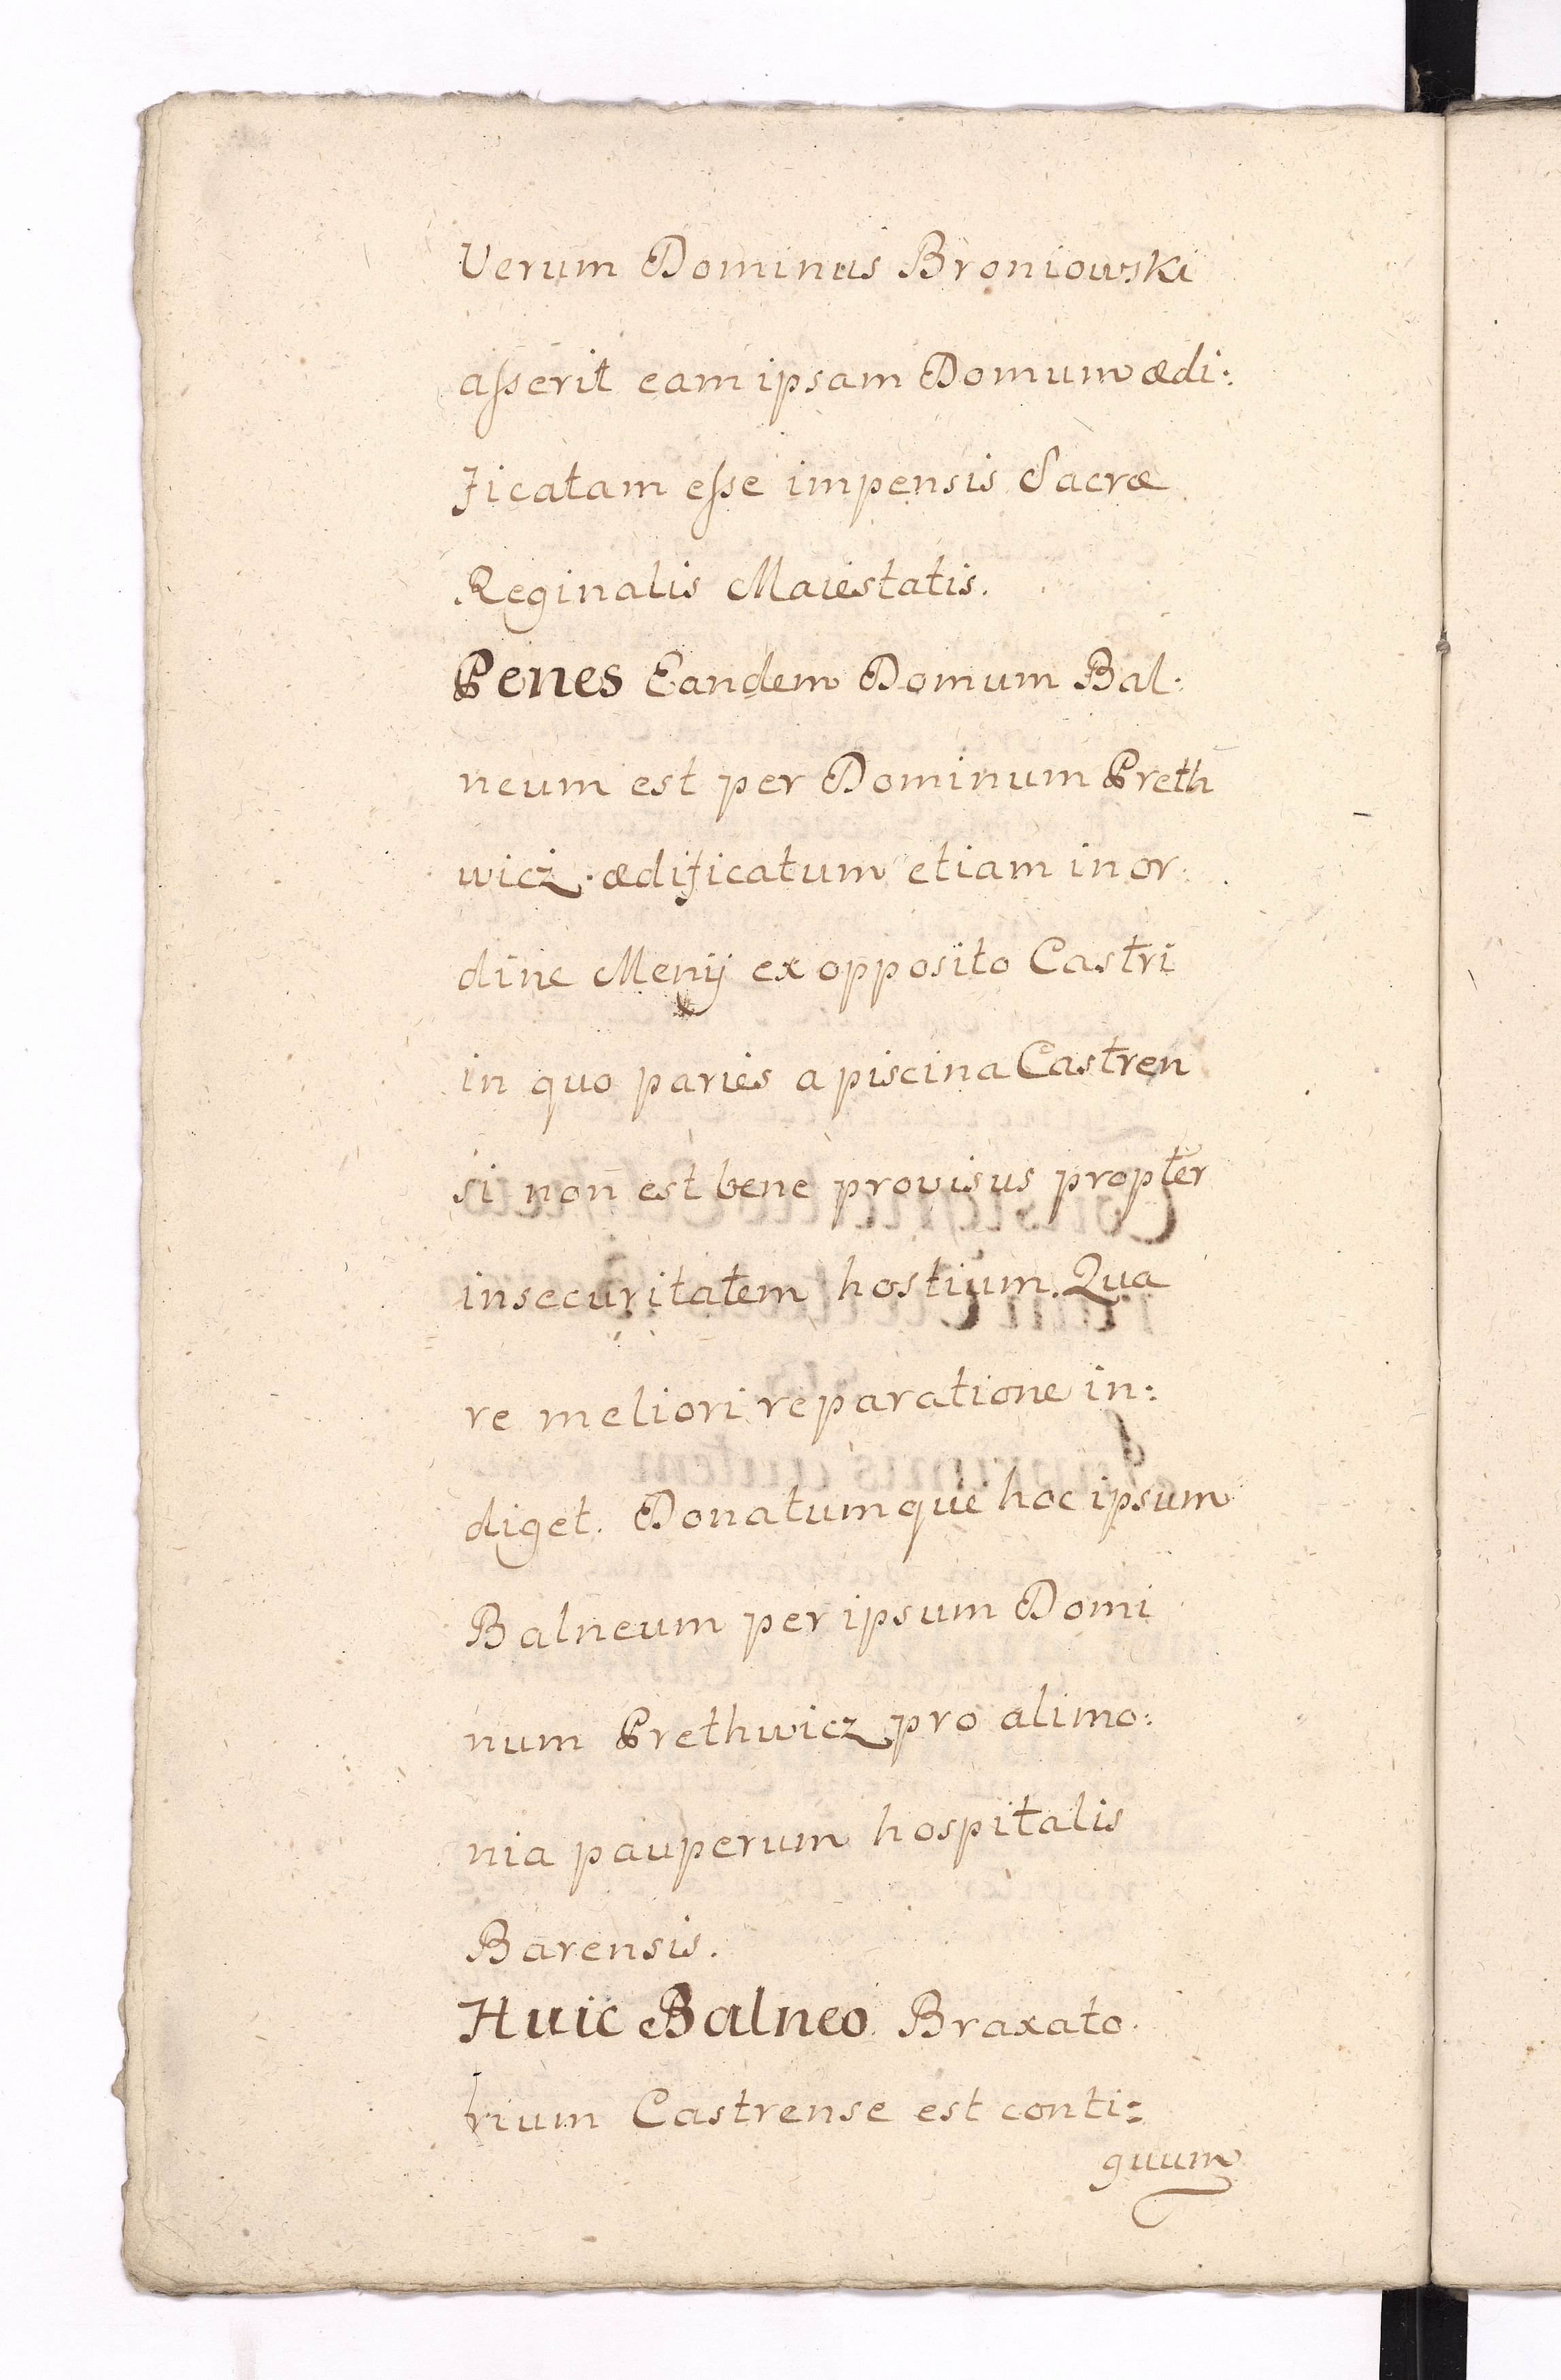 Verum Dominus Broniowski
asserit eam ipsam Domum ædi:
ficatam esse impensis Sacræ
Reginalis Maiestatis.
Penes Eandem Domum Bal:
neum est per Dominum Preth
wicz. ædificatum etiam in or:
dine Menij ex opposito Castri
in quo paries a piscina Castren
si non est bene provisus propter
insecuritatem hostium. Qua
re meliori reparatione in:
diget. Donatumque hoc ipsum
Balneum per ipsum Domi
num Prethwicz pro alimo:
nia pauperum hospitalis
Barensis.
Huic Balneo Braxato
rium Castrense est conti:
guum